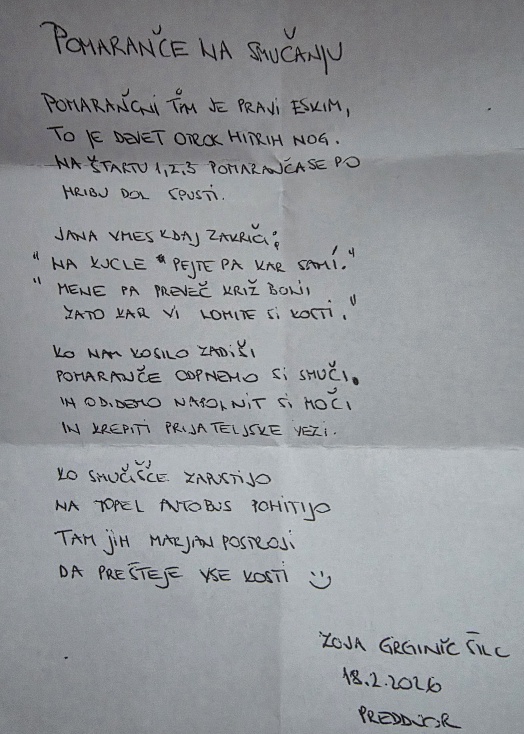 POMARANČE NA SMUČANJU
POMARANČNI TIM JE PRAVI ESKIM,
TO JE DEVET OTROK HITRIH NOG.
NA ŠTARTU 1,2,3 POMARANČA SE PO
HRIBU DOL SPUSTI.
JANA VMES KDAJ ZAKRIČI:
"NA KUCLE PEJTE PA KAR SAMI."
"MENE PA PREVEČ KRIŽ BOLI
ZATO KAR VI LOMITE SI KOSTI."
KO NAM KOSILO ZADIŠI
POMARANČE ODPNEMO SI SMUČI.
IN ODIDEMO NAPOLNIT SI MOČI
IN KREPITI PRIJATELJSKE VEZI.
KO SMUČIŠČE ZAPUSTIJO
NA TOPEL AVTOBUS POHITIJO
TAM JIH MARJAN POSTROJI
DA PREŠTEJE VSE KOSTI :)
ZOJA GRGINIČ ŠILC
18.2.2026
PREDDVOR